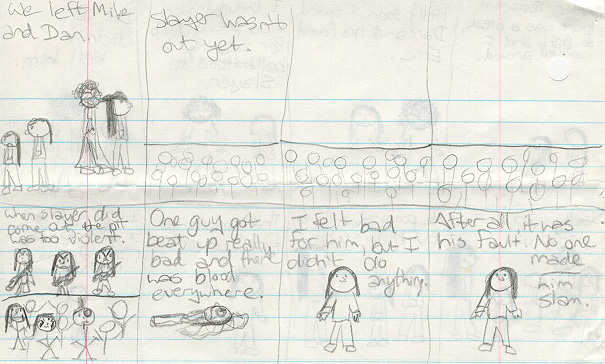 We left Mike
and Dan.
Slayer wasn't
out yet.
when slayer did
come out the pit
was too violent.
One guy got
beat up really
bad and there
was blood
everywhere.
I felt bad
for him, but I
didn't do
anything.
After all, it was
his fault. No one
made
him
slam.